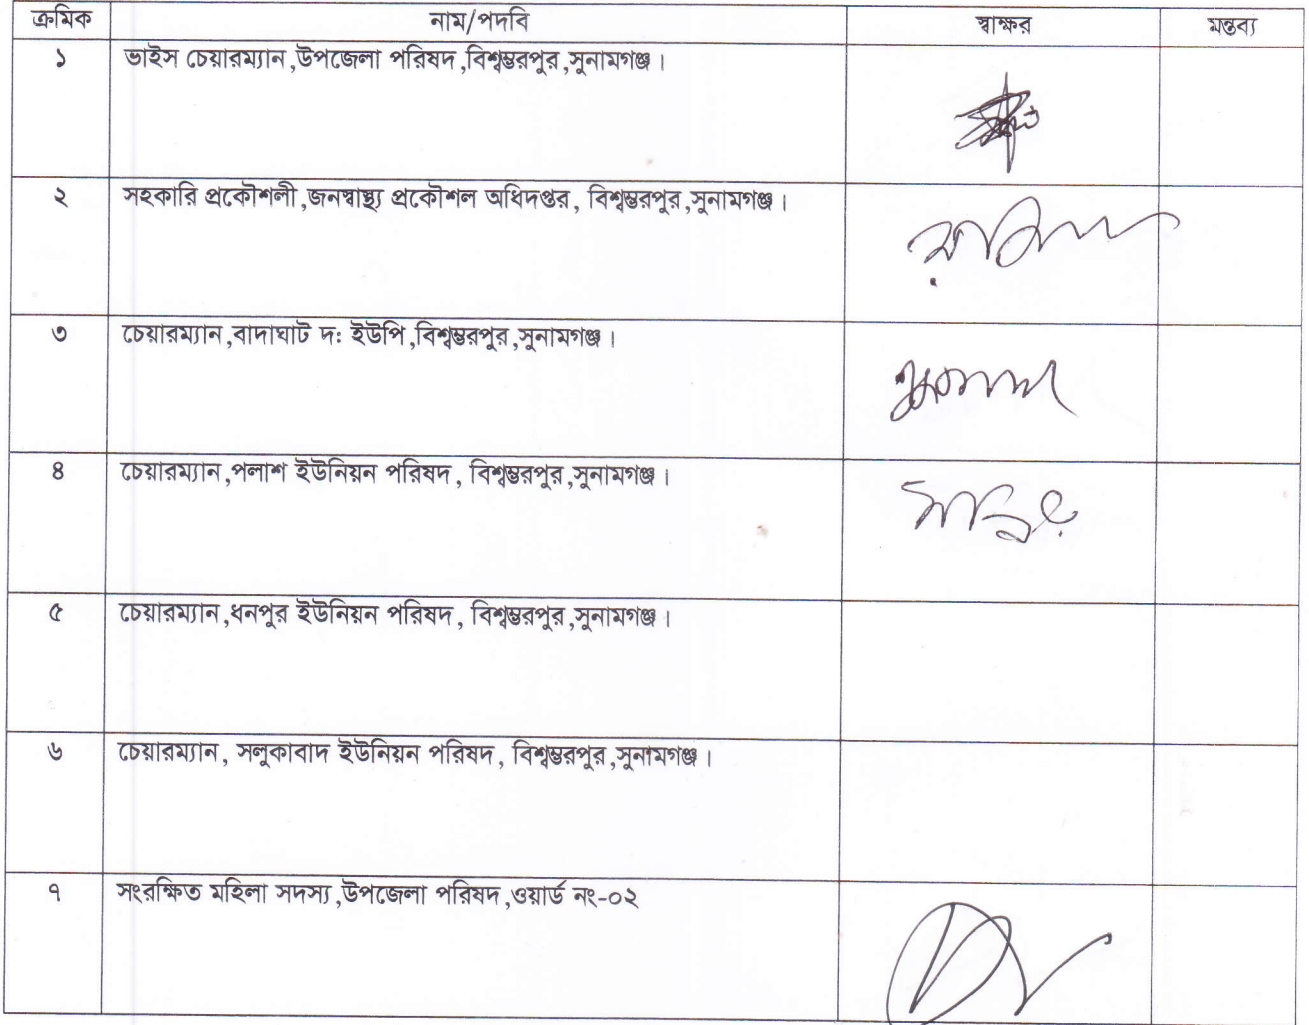 ক্রমিক নাম/পদবি স্বাক্ষর মন্তব্য
১ ভাইস চেয়ারম্যান,উপজেলা পরিষদ,বিশ্বম্ভরপুর,সুনামগঞ্জ।
২ সহকারি প্রকৌশলী,জনস্বাস্থ্য প্রকৌশল অধিদপ্তর, বিশ্বম্ভরপুর,সুনামগঞ্জ।
৩ চেয়ারম্যান,বাদাঘাট দ: ইউপি,বিশ্বম্ভরপুর,সুনামগঞ্জ।
৪ চেয়ারম্যান,পলাশ ইউনিয়ন পরিষদ, বিশ্বম্ভরপুর,সুনামগঞ্জ।
৫ চেয়ারম্যান,ধনপুর ইউনিয়ন পরিষদ, বিশ্বম্ভরপুর,সুনামগঞ্জ।
৬ চেয়ারম্যান, সলুকাবাদ ইউনিয়ন পরিষদ, বিশ্বম্ভরপুর,সুনামগঞ্জ।
৭ সংরক্ষিত মহিলা সদস্য,উপজেলা পরিষদ,ওয়ার্ড নং-০২